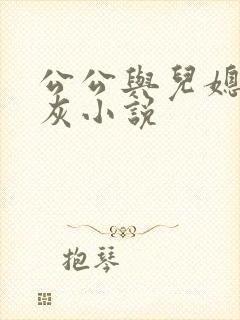 公公與兒媳
灰小說
抱琴